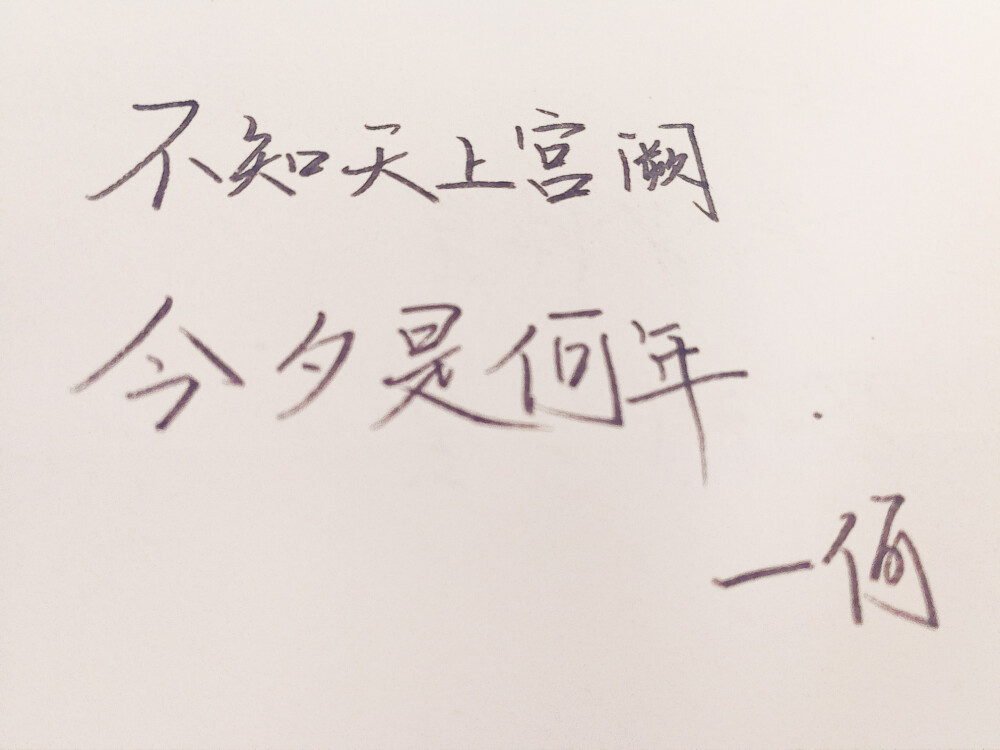 不知天上宫阙
今夕是何年.
一何